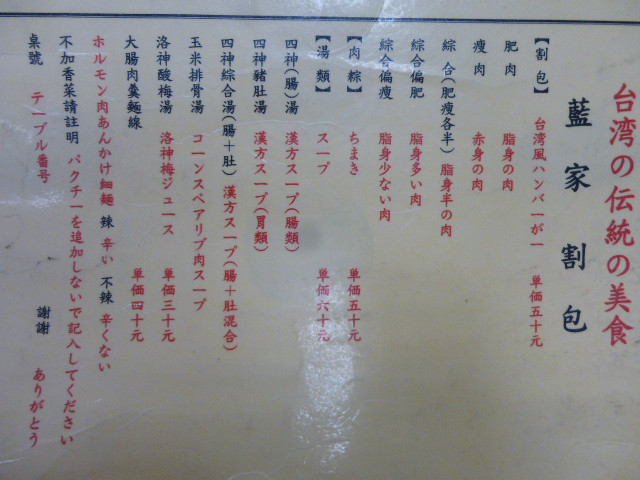 台湾の伝統の美食
藍家割包
【割包】 台湾風ハンバーがー 単価五十元
肥肉 脂身の肉
瘦肉 赤身の肉
綜合(肥瘦各半) 脂身半の肉
綜合偏肥 脂身多い肉
綜合偏瘦 脂身少ない肉
【肉粽】 ちまき 単価五十元
【湯類】 スープ 単価六十元
四神(腸)湯 漢方スープ(腸類)
四神豬肚湯 漢方スープ(胃類)
四神綜合湯(腸+肚) 漢方スープ(腸+肚混合)
玉米排骨湯 コーンスペアリブ肉スープ
洛神酸梅湯 洛神梅ジュース 単価三十元
大腸肉羹麵線 単価四十元
ホルモン肉あんかけ細麵 辣 辛い 不辣 辛くない
不加香菜請註明 パクチーを追加しないで記入してください
桌號 テーブル番号 謝謝 ありがとう